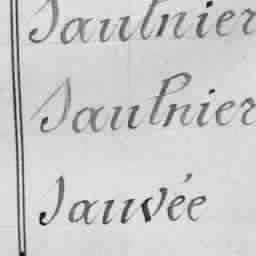 Saulnier
Saulnier
Sauvée